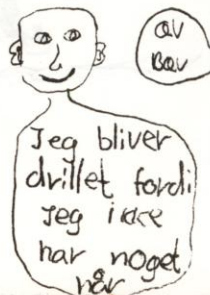 av
bav
Jeg bliver
drillet fordi
Jeg ikke
har noget
hår